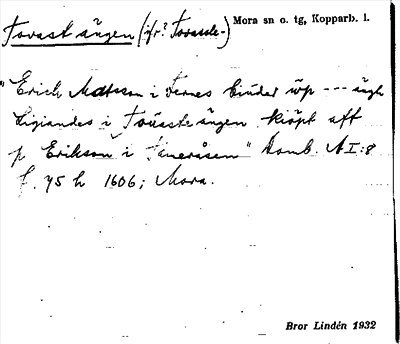 Tovast ängen (jfr? Tovaste-) Mora sn o. tg, Kopparb. l.
"Erich Matsson i Fernes biuder wp --- ängh
Ligiandes i Toúasteängen kiöpt aff
p Erikson i " Domb. A I:8
f. 45 h 1606; Mora.
Bror Lindén 1932